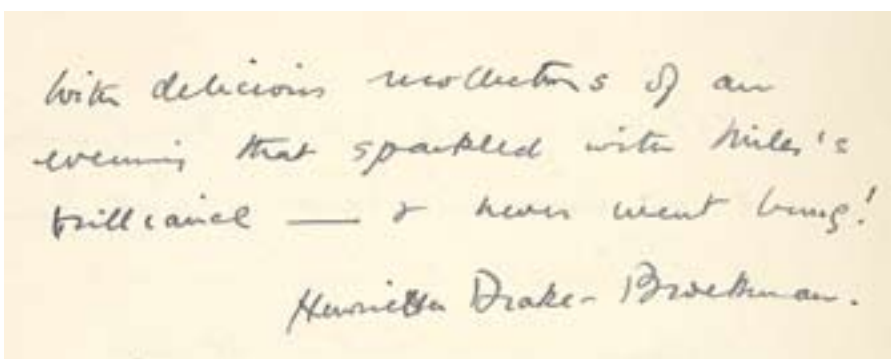 With delicious recollections of an
evening that sparkled with Miles's
brilliance — & never went bung!
Henrietta Drake-Brockman.